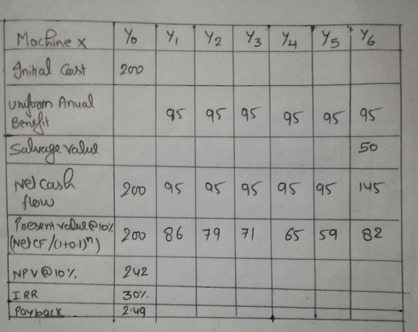 Machine x Y0 Y1 Y2 Y3 Y4 Y5 Y6
Initial Cost 200
Uniform Anual
Benefit 95 95 95 95 95 95
Salvage value 50
Net cash
flow 200 95 95 95 95 95 145
Present value @10%
(Net CF/(1+0.1)^n) 200 86 79 71 65 59 82
NPV @ 10% 242
IRR 30%
Payback 2.49